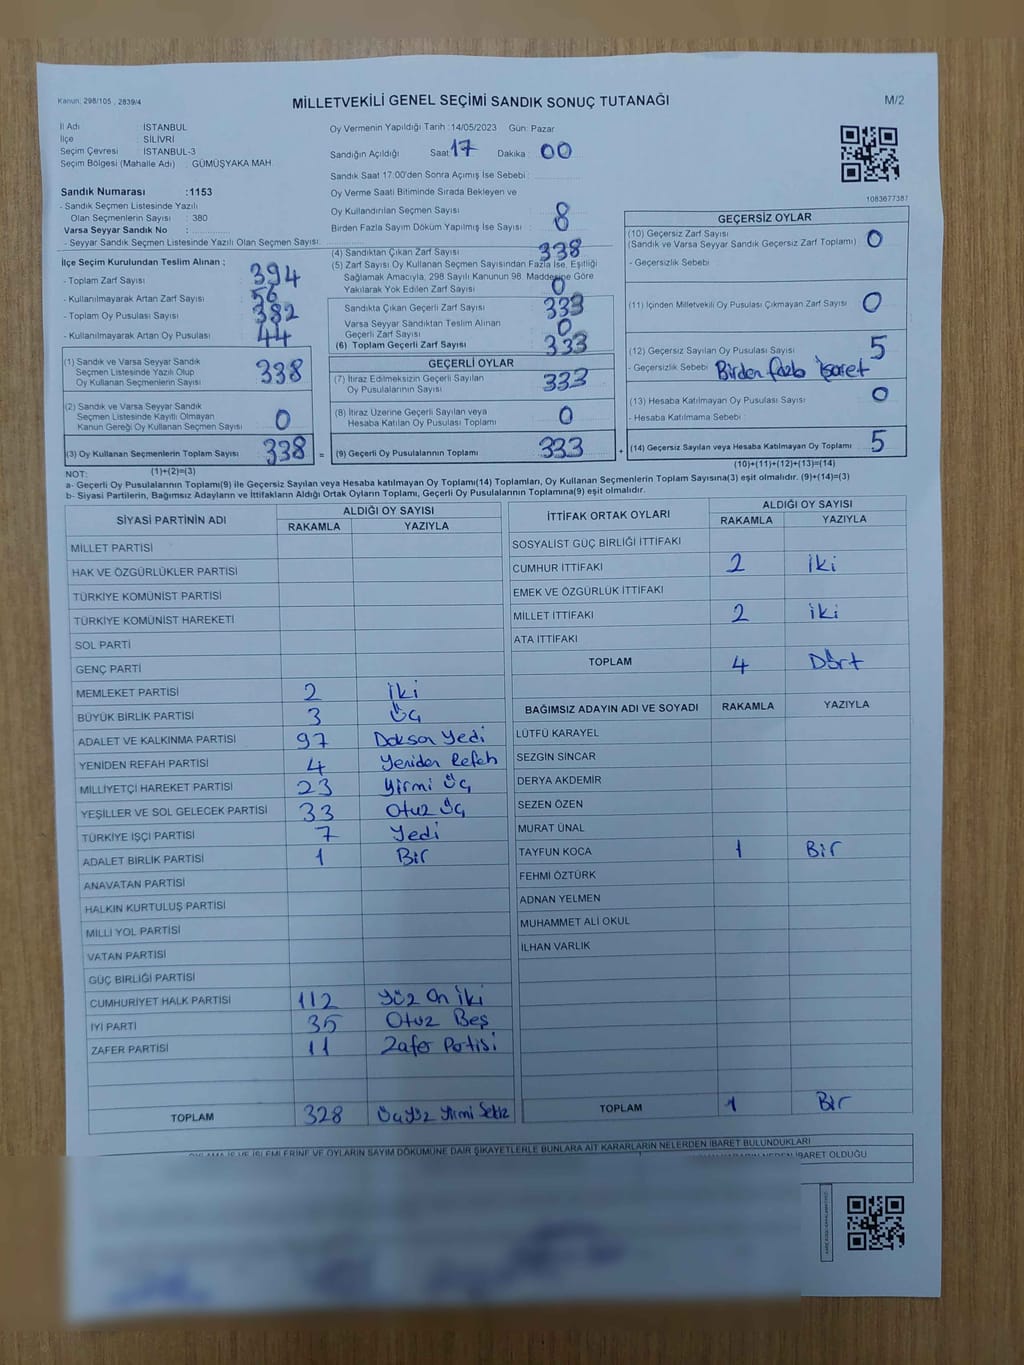 Kanun; 298/105 , 2839/4
MİLLETVEKİLİ GENEL SEÇİMİ SANDIK SONUÇ TUTANAĞI
M/2
İl Adı : İSTANBUL
İlçe : SİLİVRİ
Seçim Çevresi : İSTANBUL-3
Seçim Bölgesi (Mahalle Adı) : GÜMÜŞYAKA MAH.
Sandık Numarası :1153
- Sandık Seçmen Listesinde Yazılı
Olan Seçmenlerin Sayısı : 380
Varsa Seyyar Sandık No : ....................
- Seyyar Sandık Seçmen Listesinde Yazılı Olan Seçmen Sayısı: ....................
Oy Vermenin Yapıldığı Tarih :14/05/2023 Gün: Pazar
Sandığın Açıldığı Saat: 17 Dakika : 00
Sandık Saat 17.00'den Sonra Açımış İse Sebebi : ....................
Oy Verme Saati Bitiminde Sırada Bekleyen ve
Oy Kullandırılan Seçmen Sayısı : 8
Birden Fazla Sayım Döküm Yapılmış İse Sayısı :
1083677387
İlçe Seçim Kurulundan Teslim Alınan ;
- Toplam Zarf Sayısı : 394
- Kullanılmayarak Artan Zarf Sayısı : 56
- Toplam Oy Pusulası Sayısı : 382
- Kullanılmayarak Artan Oy Pusulası : 44
(1) Sandık ve Varsa Seyyar Sandık
Seçmen Listesinde Yazılı Olup
Oy Kullanan Seçmenlerin Sayısı 338
(2) Sandık ve Varsa Seyyar Sandık
Seçmen Listesinde Kayıtlı Olmayan
Kanun Gereği Oy Kullanan Seçmen Sayısı 0
(3) Oy Kullanan Seçmenlerin Toplam Sayısı 338 =
(4) Sandıktan Çıkan Zarf Sayısı : 338
(5) Zarf Sayısı Oy Kullanan Seçmen Sayısından Fazla İse, Eşitliği
Sağlamak Amacıyla, 298 Sayılı Kanunun 98. Maddesine Göre
Yakılarak Yok Edilen Zarf Sayısı : 0
Sandıkta Çıkan Geçerli Zarf Sayısı : 333
Varsa Seyyar Sandıktan Teslim Alınan
Geçerli Zarf Sayısı : 0
(6) Toplam Geçerli Zarf Sayısı : 333
GEÇERLİ OYLAR
(7) İtiraz Edilmeksizin Geçerli Sayılan
Oy Pusulalarının Sayısı : 333
(8) İtiraz Üzerine Geçerli Sayılan veya
Hesaba Katılan Oy Pusulası Toplamı 0
(9) Geçerli Oy Pusulalarının Toplamı 333 +
GEÇERSİZ OYLAR
(10) Geçersiz Zarf Sayısı
(Sandık ve Varsa Seyyar Sandık Geçersiz Zarf Toplamı) : 0
- Geçersizlik Sebebi :
(11) İçinden Milletvekili Oy Pusulası Çıkmayan Zarf Sayısı : 0
(12) Geçersiz Sayılan Oy Pusulası Sayısı : 5
- Geçersizlik Sebebi : Birden fazla işaret
(13) Hesaba Katılmayan Oy Pusulası Sayısı : 0
- Hesaba Katılmama Sebebi :
(14) Geçersiz Sayılan veya Hesaba Katılmayan Oy Toplamı : 5
NOT: (1)+(2)=(3)
(10)+(11)+(12)+(13)=(14)
a- Geçerli Oy Pusulalarının Toplamı(9) ile Geçersiz Sayılan veya Hesaba katılmayan Oy Toplamı(14) Toplamları, Oy Kullanan Seçmenlerin Toplam Sayısına(3) eşit olmalıdır. (9)+(14)=(3)
b- Siyasi Partilerin, Bağımsız Adayların ve İttifakların Aldığı Ortak Oyların Toplamı, Geçerli Oy Pusulalarının Toplamına(9) eşit olmalıdır.
SİYASİ PARTİNİN ADI ALDIĞI OY SAYISI
RAKAMLA YAZIYLA
MİLLET PARTİSİ
HAK VE ÖZGÜRLÜKLER PARTİSİ
TÜRKİYE KOMÜNİST PARTİSİ
TÜRKİYE KOMÜNİST HAREKETİ
SOL PARTİ
GENÇ PARTİ
MEMLEKET PARTİSİ 2 iki
BÜYÜK BİRLİK PARTİSİ 3 Üç
ADALET VE KALKINMA PARTİSİ 97 Doksan Yedi
YENİDEN REFAH PARTİSİ 4 Yeniden Refah
MİLLİYETÇİ HAREKET PARTİSİ 23 Yirmi Üç
YEŞİLLER VE SOL GELECEK PARTİSİ 33 Otuz Üç
TÜRKİYE İŞÇİ PARTİSİ 7 Yedi
ADALET BİRLİK PARTİSİ 1 Bir
ANAVATAN PARTİSİ
HALKIN KURTULUŞ PARTİSİ
MİLLİ YOL PARTİSİ
VATAN PARTİSİ
GÜÇ BİRLİĞİ PARTİSİ
CUMHURİYET HALK PARTİSİ 112 Yüz On İki
İYİ PARTİ 35 Otuz Beş
ZAFER PARTİSİ 11 Zafer Partisi
TOPLAM 328 Üçyüz Yirmi Sekiz
İTTİFAK ORTAK OYLARI ALDIĞI OY SAYISI
RAKAMLA YAZIYLA
SOSYALİST GÜÇ BİRLİĞİ İTTİFAKI
CUMHUR İTTİFAKI 2 iki
EMEK VE ÖZGÜRLÜK İTTİFAKI
MİLLET İTTİFAKI 2 iki
ATA İTTİFAKI
TOPLAM 4 Dört
BAĞIMSIZ ADAYIN ADI VE SOYADI RAKAMLA YAZIYLA
LÜTFÜ KARAYEL
SEZGİN SİNCAR
DERYA AKDEMİR
SEZEN ÖZEN
MURAT ÜNAL
TAYFUN KOCA 1 Bir
FEHMİ ÖZTÜRK
ADNAN YELMEN
MUHAMMET ALİ OKUL
İLHAN VARLIK
TOPLAM 1 Bir
OYLAMA İŞ VE İŞLEMLERİNE VE OYLARIN SAYIM DÖKÜMÜNE DAİR ŞİKAYETLERLE BUNLARA AİT KARARLARIN NELERDEN İBARET BULUNDUKLARI
İBARET OLDUĞU